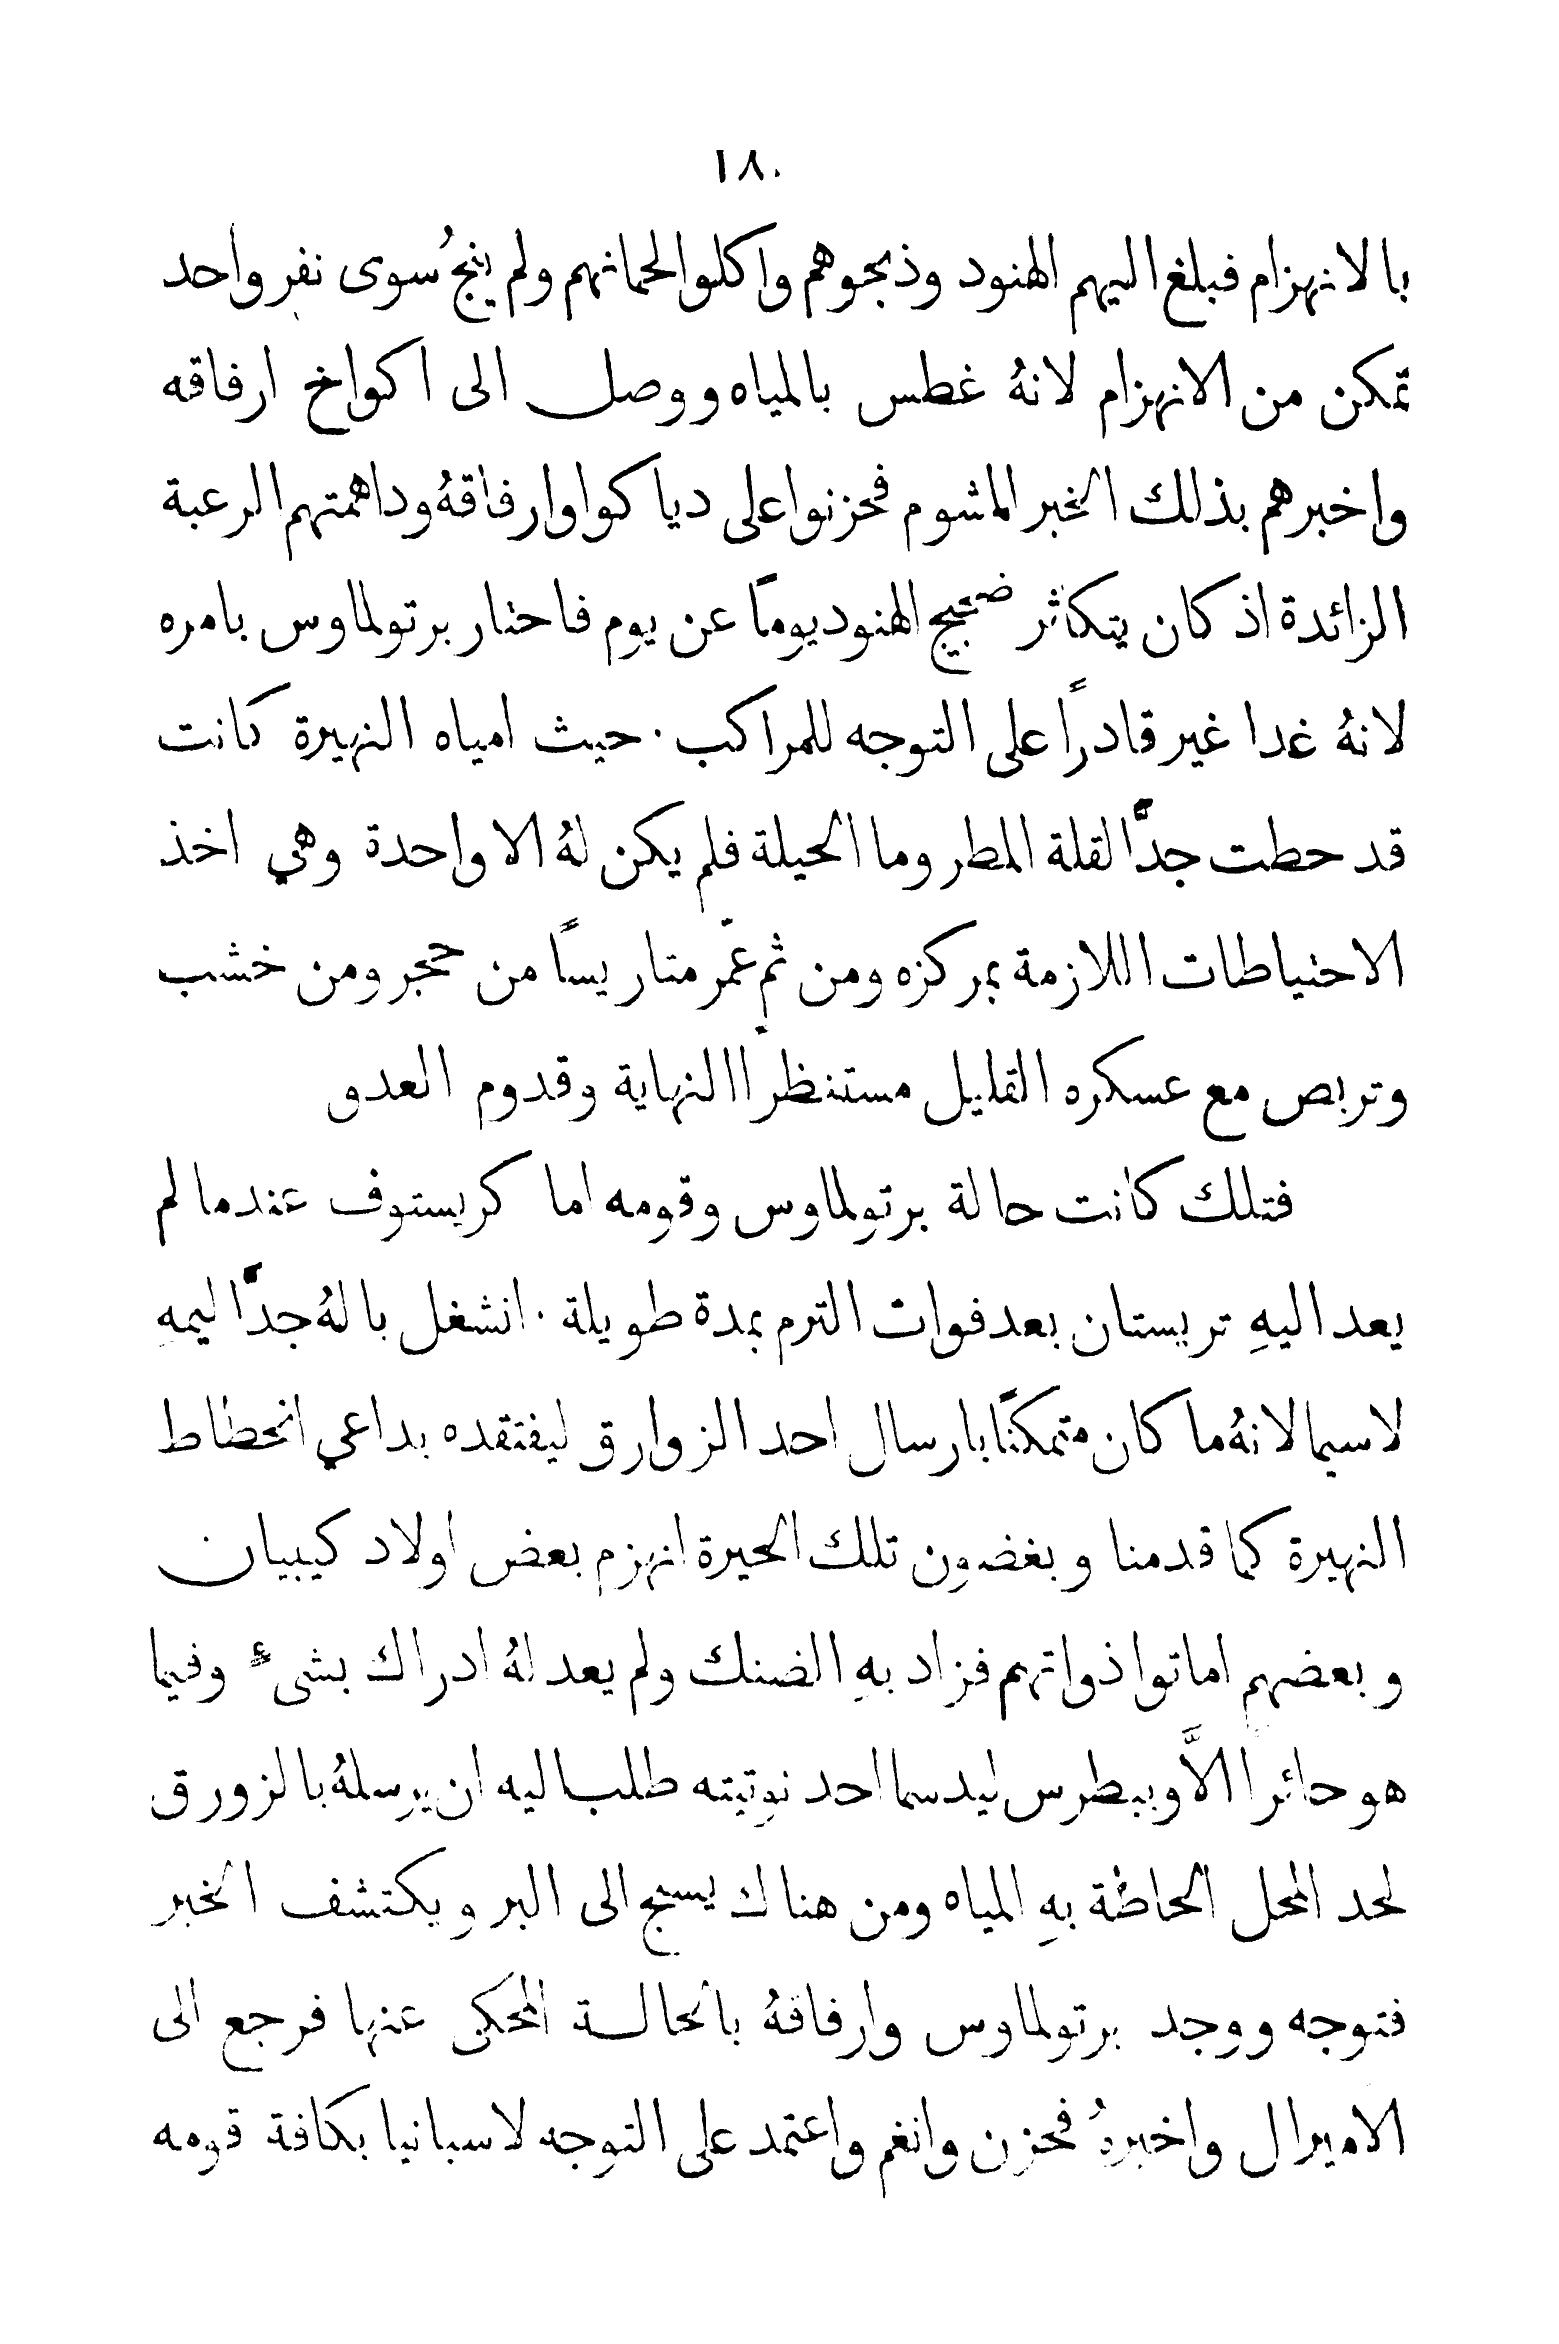 ١٨٠
بالانهزام فبلغ اليهم الهنود وذبحوهم واكلوا لحمانهم ولم ينجُ سوى نفر واحد
تمكن من الانهزام لانهُ غطس بالمياه ووصل الى اكواخ ارفاقه
واخبرهم بذلك الخبر المشوم فحزنوا على دياكو وارفاقهُ وداهمتهم الرعبة
الزائدة اذ كان يتكاثر ضجيج الهنود يومًا عن يوم فاحتار برتولماوس بامره
لانهُ غدا غير قادرًا على التوجه للمراكب . حيث امياه النهيرة كانت
قد حطت جدًّا لقلة المطر وما الحيلة فلم يكن لهُ الا واحدة وهي اخذ
الاحتياطات اللازمة بمركزه ومن ثم عمّر متاريسًا من حجر ومن خشب
وتربص مع عسكره القليل مستنظرًا النهاية وقدوم العدو
فتلك كانت حالة برتولماوس وقومه اما كريستوف عندما لم
يعد اليهِ تريستان بعد فوات الترم بمدة طويلة . انشغل بالهُ جدًّا ليمهِ
لاسيما لانهُ ما كان متمكنًا بارسال احد الزوارق ليفتقده بداعي انحطاط
النهيرة كما قدمنا وبغضون تلك الحيرة انهزم بعض اولاد كيبيان
وبعضهم اماتوا ذواتهم فزاد بهِ الضنك ولم يعد لهُ ادراك بشيء وفيما
هو حائرا الاَّ وبيطرس ليدسما احد نوتيته طلب اليه ان يرسلهُ بالزورق
لحد المحل الحاطة بهِ المياه ومن هناك يسبح الى البر ويكتشف الخبر
فتوجه ووجد برتولماوس وارفاقهُ بالحالة المحكى عنها فرجع الى
الاميرال واخبرهُ فحزن وانغم واعتمد على التوجه لاسبانيا بكافة قومه